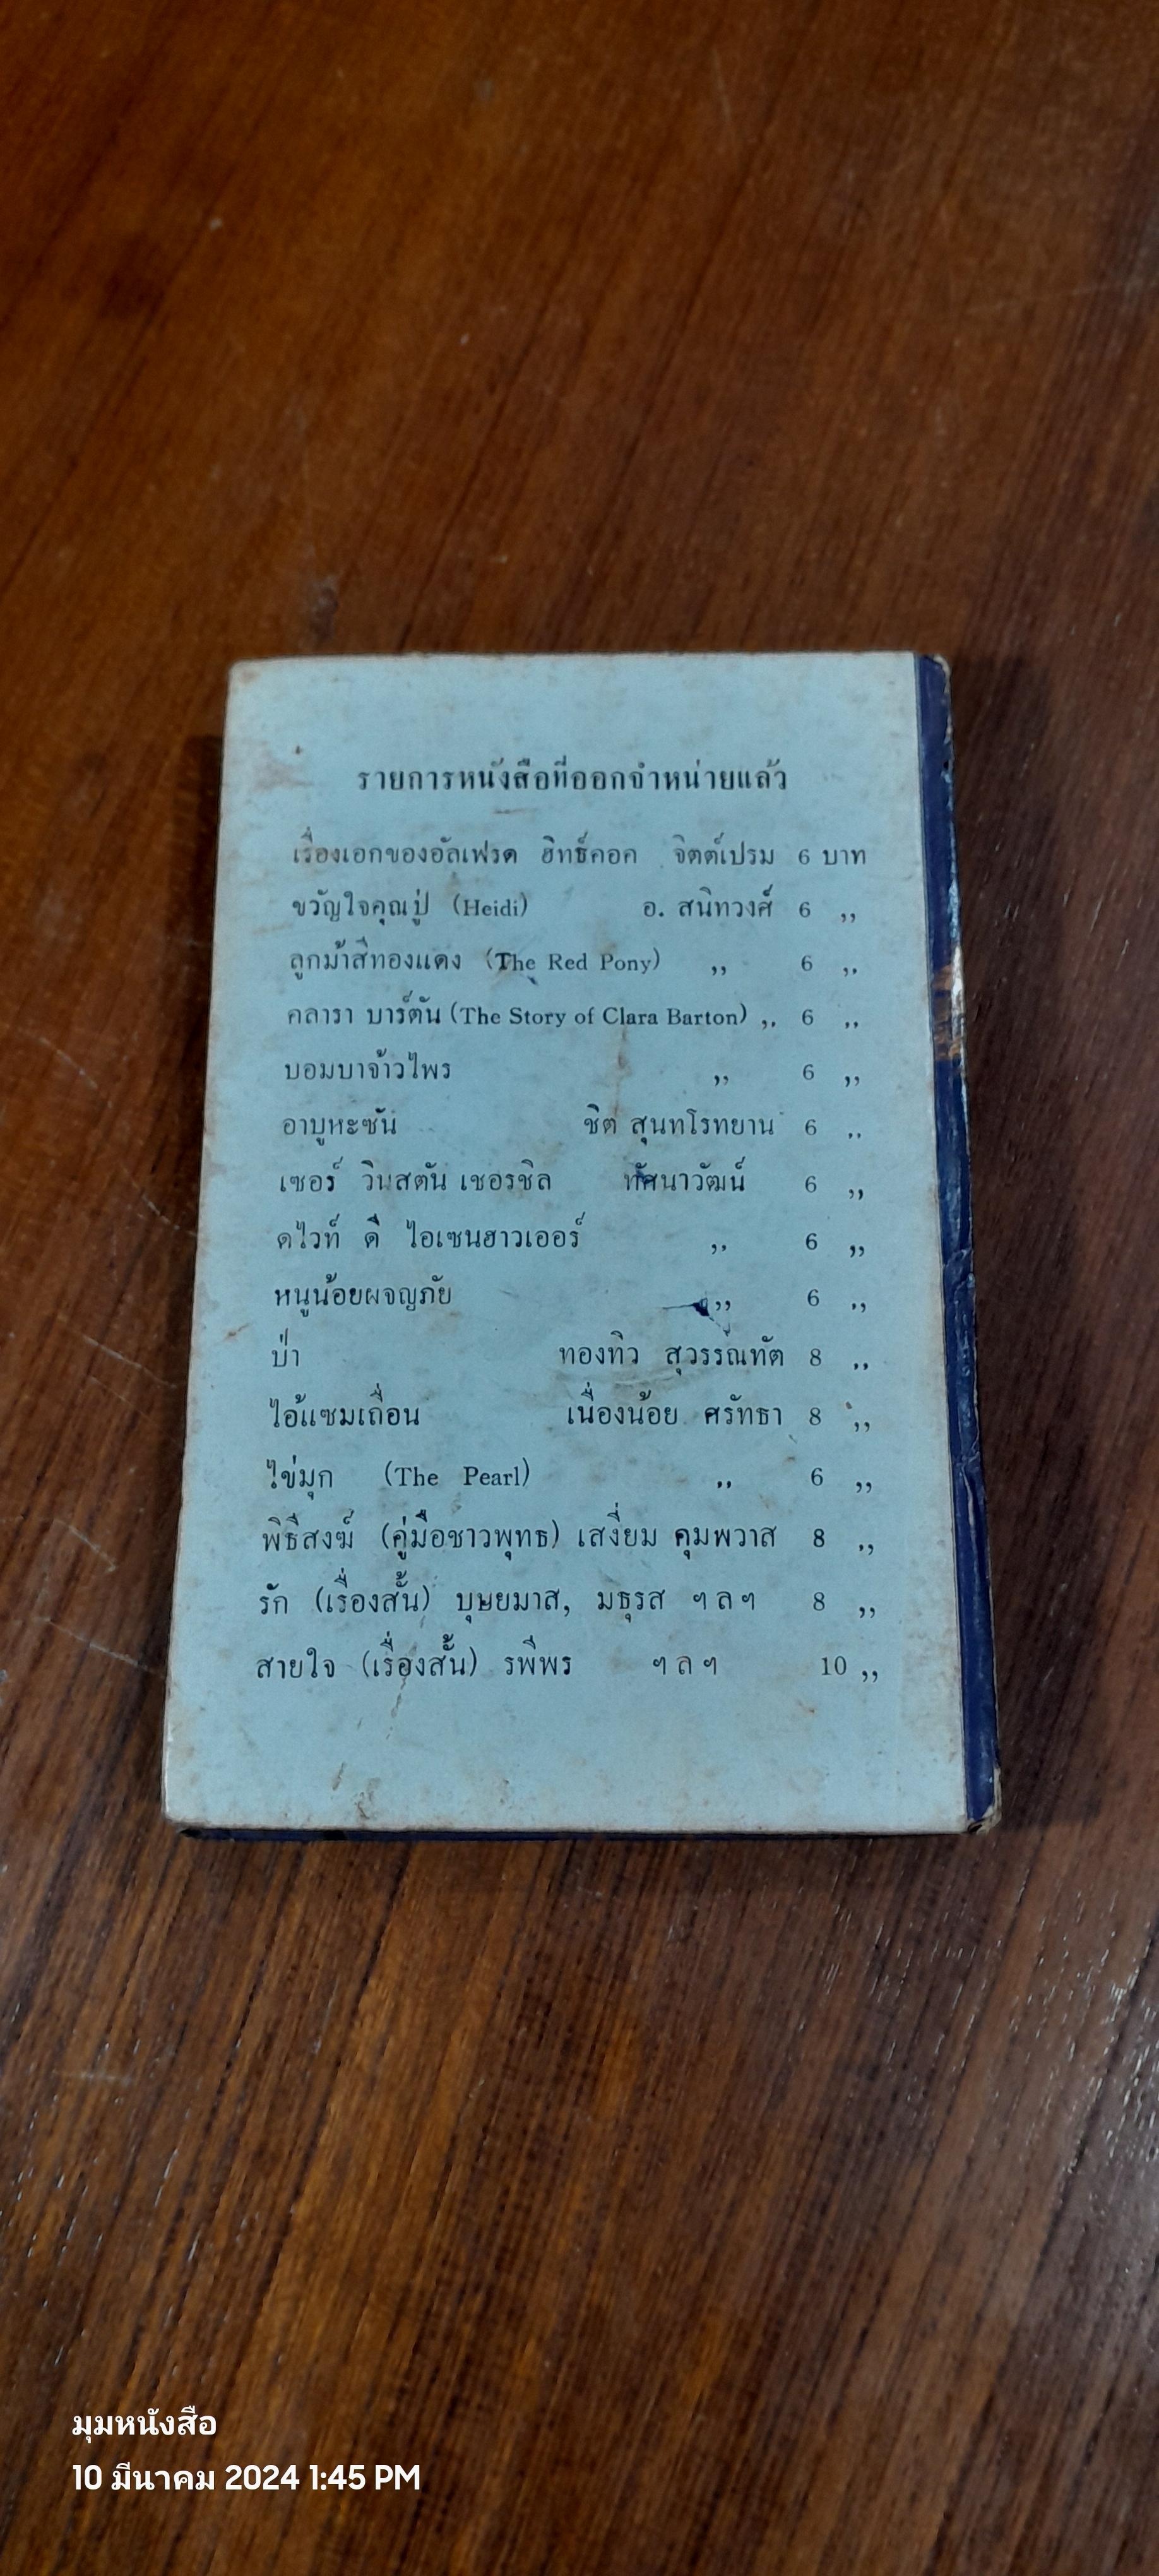 รายการหนังสือที่ออกจำหน่ายแล้ว
เรื่องเอกของอัลเฟรด ฮิทธ์คอค จิตต์เปรม 6 บาท
ขวัญใจคุณปู่ (Heidi) อ. สนิทวงศ์ 6 ,,
ลูกม้าสีทองแดง (The Red Pony) ,, 6 ,,
คลารา บาร์ตัน (The Story of Clara Barton) ,, 6 ,,
บอมบาจ้าวไพร ,, 6 ,,
อาบูหะซัน ชิต สุนทโรทยาน 6 ,,
เซอร์ วินสตัน เชอรชิล ทัศนาวัฒน์ 6 ,,
ดไวท์ ดี ไอเซนฮาวเออร์ ,, 6 ,,
หนูน้อยผจญภัย ,, 6 ,,
ป่า ทองทิว สุวรรณทัต 8 ,,
ไอ้แซมเถื่อน เนื่องน้อย ศรัทธา 8 ,,
ไข่มุก (The Pearl) ,, 6 ,,
พิธีสงฆ์ (คู่มือชาวพุทธ) เสงี่ยม คุมพวาส 8 ,,
รัก (เรื่องสั้น) บุษยมาส, มธุรส ฯลฯ 8 ,,
สายใจ (เรื่องสั้น) รพีพร ฯลฯ 10 ,,
มุมหนังสือ
10 มีนาคม 2024 1:45 PM